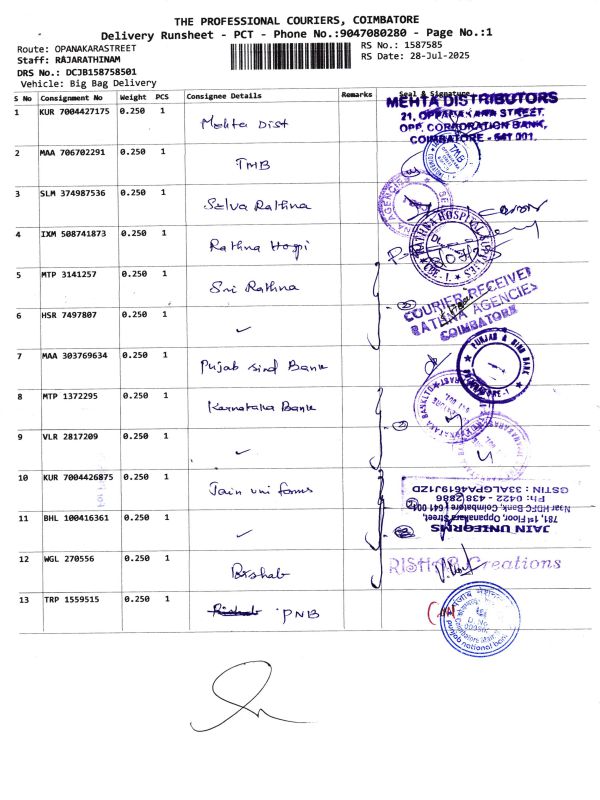 THE PROFESSIONAL COURIERS, COIMBATORE
Delivery Runsheet - PCT - Phone No.:9047080280 - Page No.:1
Route: OPANAKARASTREET
RS No.: 1587585
Staff: RAJARATHINAM
RS Date: 28-Jul-2025
DRS No.: DCJB158758501
Vehicle: Big Bag Delivery
S No Consignment No Weight PCS Consignee Details Remarks Seal & Signature
1 KUR 7004427175 0.250 1 Mehta Dist
MEHTA DISTRIBUTORS
21, OPPANAKARA STREET,
OPP. CORPORATION BANK,
COIMBATORE - 641 001.
2 MAA 706702291 0.250 1 TMB
TMB
3 SLM 374987536 0.250 1 Selva Rathna
AGENCIES
4 IXM 508741873 0.250 1 Rathna Hospi
RATHNA HOSPITAL
CBE - 1.
5 MTP 3141257 0.250 1 Sri Rathna
6 HSR 7497807 0.250 1 ✓
COURIER RECEIVED
RATHNA AGENCIES
COIMBATORE
7 MAA 303769634 0.250 1 Punjab Sind Bank
PUNJAB & SIND BANK
8 MTP 1372295 0.250 1 Karnataka Bank
KARNATAKA BANK LTD
9 VLR 2817209 0.250 1 ✓
10 KUR 7004426875 0.250 1 Jain uni forms
JAIN UNIFORMS
781, 1st Floor, Oppanakara Street,
Near HDFC Bank, Coimbatore - 641 001
Ph: 0422 - 438 2886
GSTIN : 33ALGPA4619J1ZD
11 BHL 100416361 0.250 1 ✓
12 WGL 270556 0.250 1 Rishab
RISHAB Creations
13 TRP 1559515 0.250 1 PNB
punjab national bank